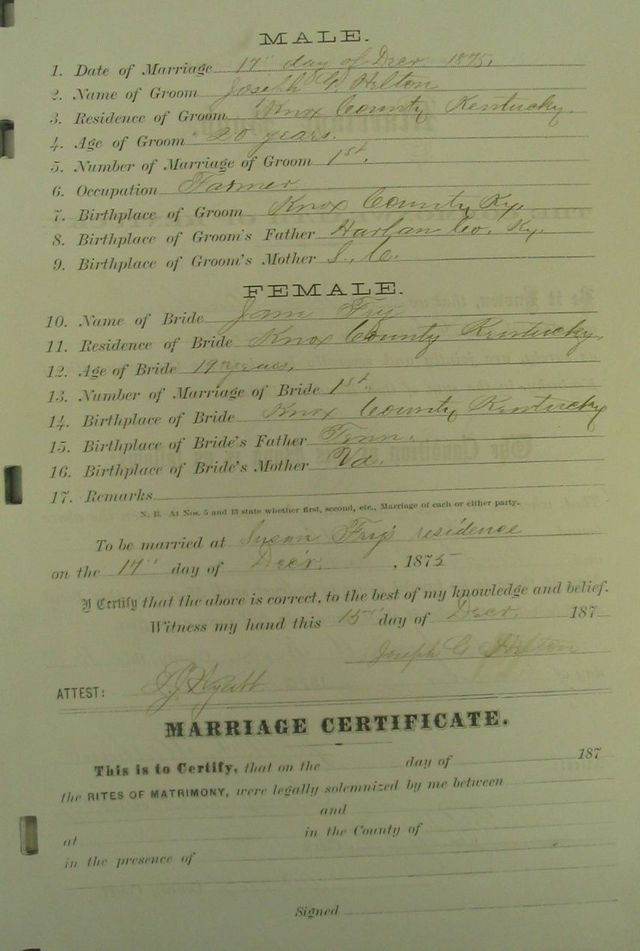 MALE.
1. Date of Marriage 17" day of Decr 1875.
2. Name of Groom Joseph G. Hilton
3. Residence of Groom Knox County Kentucky.
4. Age of Groom 20 years.
5. Number of Marriage of Groom 1st.
6. Occupation Farmer
7. Birthplace of Groom Knox County Ky.
8. Birthplace of Groom's Father Harlan Co. Ky.
9. Birthplace of Groom's Mother S. C.
FEMALE.
10. Name of Bride Jam Fry
11. Residence of Bride Knox County Kentucky,
12. Age of Bride 19 years.
13. Number of Marriage of Bride 1st.
14. Birthplace of Bride Knox County Kentucky
15. Birthplace of Bride's Father Tenn.
16. Birthplace of Bride's Mother Va.
17. Remarks
N. B. At Nos. 5 and 13 state whether first, second, etc., Marriage of each or either party.
To be married at Susan Fry's residence
on the 17" day of Decr. , 1875
I Certify that the above is correct, to the best of my knowledge and belief.
Witness my hand this 15" day of Decr. 187
Joseph G Hilton
ATTEST:
MARRIAGE CERTIFICATE.
This is to Certify, that on the day of 187
the RITES OF MATRIMONY, were legally solemnized by me between
and
at in the County of
in the presence of
Signed